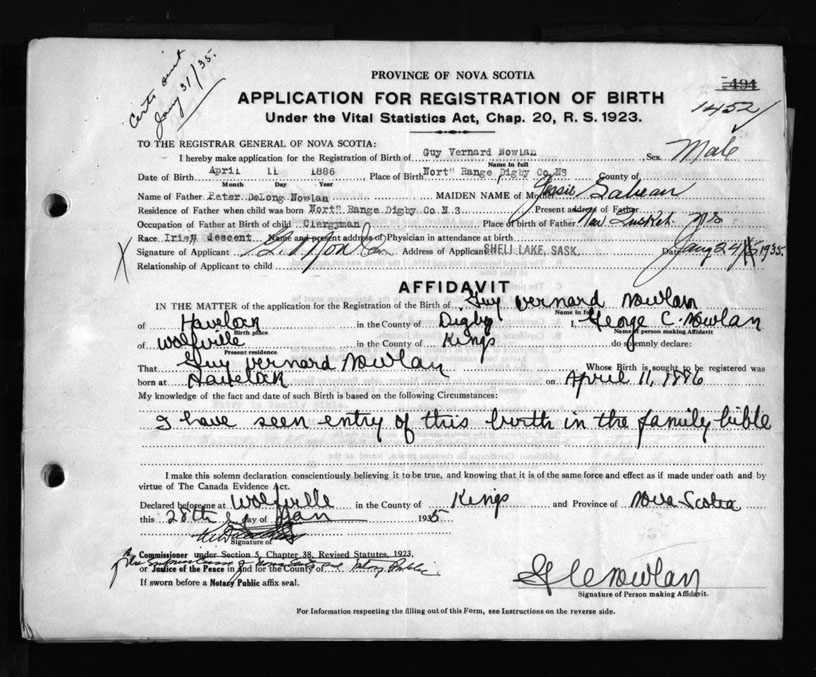 Certs out
Jany 31/35.
PROVINCE OF NOVA SCOTIA
494
APPLICATION FOR REGISTRATION OF BIRTH
1452
Under the Vital Statistics Act, Chap. 20, R. S. 1923.
TO THE REGISTRAR GENERAL OF NOVA SCOTIA:
I hereby make application for the Registration of Birth of Guy Vernard Nowlan Sex Male
Name in full
Date of Birth April 11 1886 Place of Birth Nort" Range Digby Co NS County of
Month Day Year
Name of Father Peter DeLong Nowlan MAIDEN NAME of Mother Jessie Sabean
Residence of Father when child was born Nort" Range Digby Co N S. Present address of Father
Occupation of Father at Birth of child Clergyman Place of birth of Father New Tusket. N S
Race Iris" descent Name and present address of Physician in attendance at birth
Signature of Applicant G. V. Nowlan Address of Applicant SHELL LAKE, SASK. Date Jany 24 1935.
Relationship of Applicant to child
AFFIDAVIT
IN THE MATTER of the application for the Registration of the Birth of Guy Vernard Nowlan
Name in full
of Havelock in the County of Digby I, George C. Nowlan
Birth place Name of person making Affidavit
of Wolfville in the County of Kings do solemnly declare:
Present residence
That Guy Vernard Nowlan Whose Birth is sought to be registered was
born at Havelock on April 11, 1886
My knowledge of the fact and date of such Birth is based on the following Circumstances:
I have seen entry of this birth in the family bible
I make this solemn declaration conscientiously believing it to be true, and knowing that it is of the same force and effect as if made under oath and by
virtue of The Canada Evidence Act.
Declared before me at Wolfville in the County of Kings and Province of Nova Scotia
this 28th day of Jan 1935
Signature of
A Commissioner under Section 5, Chapter 38, Revised Statutes, 1923,
or Justice of the Peace in and for the County of Notary Public
If sworn before a Notary Public affix seal.
G C Nowlan
Signature of Person making Affidavit.
For Information respecting the filling out of this Form, see Instructions on the reverse side.